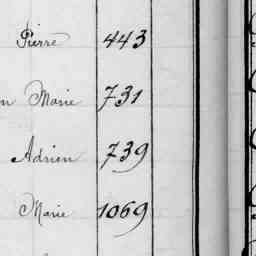 Pierre 443
n Marie 731
Adrien 739
Marie 1069